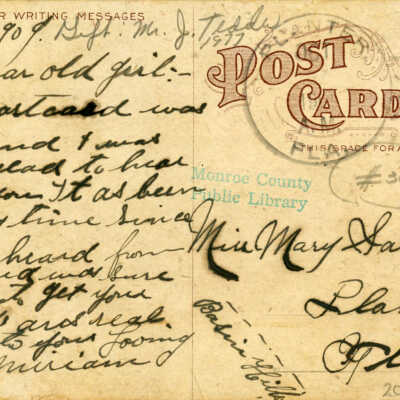 R WRITING MESSAGES
909. Gift: Mr. J.
1977
ar old girl:-
ostcard was
nd I was
lead to hear
you It as been
time since
heard from
nd was sure
to get your
ards real
to your loving
Miriam
POST
CARD
FLA
THIS SPACE FOR A
Monroe County
Public Library
#3
Miss Mary
Fla
20